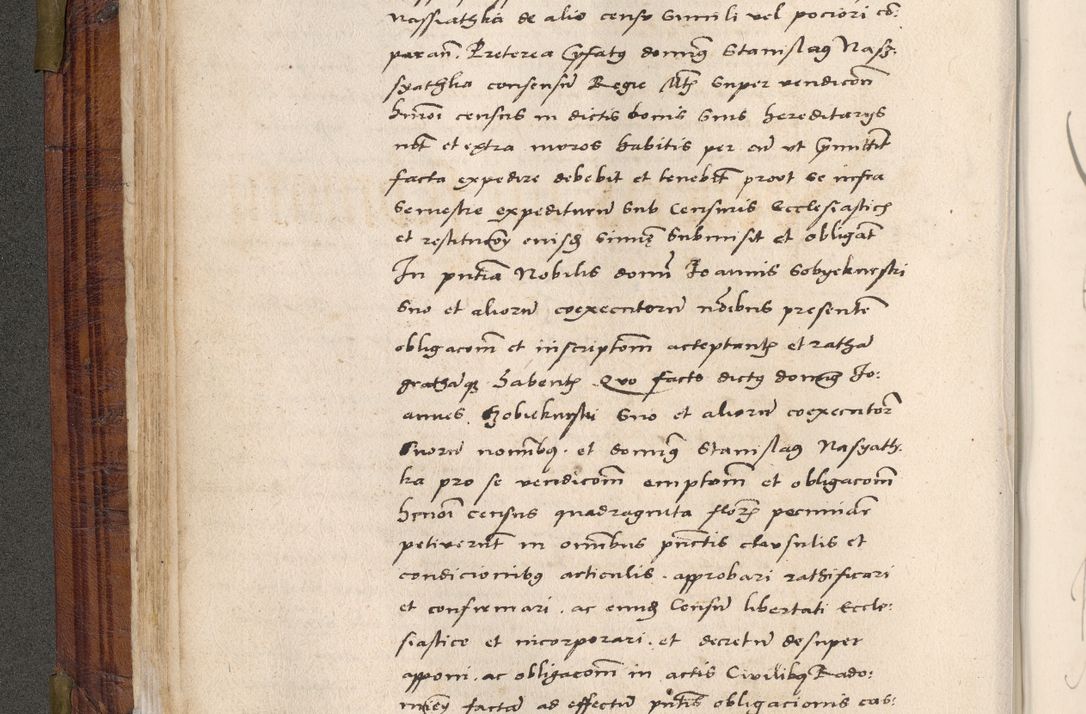 Nassiathka de alio censu simili vel pociori co:
paran. Preterea prefatus dominus Stanislaus Nass:
syathka consensum Regie Mtis super vendicom
hmoi census in dictis bonis suis hereditarys
int et extra muros habitis per eum ut premittit
facta expedire debebit et tenebit prout se infra
semestre expediturum sub Censuris Ecclesiastich
et restitucoy eiusd sumе submisit et obligat
In pntia Nobilis domi Joannis Sobyeknrski
suo et aliorum coexecutorum noibus presentem
obligacom et inscriptom acceptantis et ratha
grathaque habentis Quo facto dictus dominus Jo:
annes Sobieknrski suo et aliorum coexecutor
suorum nominibus et dominus Stanislaus Nasyath:
ka pro se vendicom emptom et obligacom
hmoi census quadraginta floren pecuniar
petiverunt in omnibus punctis clausulis et
condicionibus articulis approbari rathificari
et confirmari ac eund Censum libertati Eccle:
siastice et incorporari et decretum desuper
apponi ac obligacom in actis Civilibus Rado:
mien factam ad effectum pntis obligacionis cas: